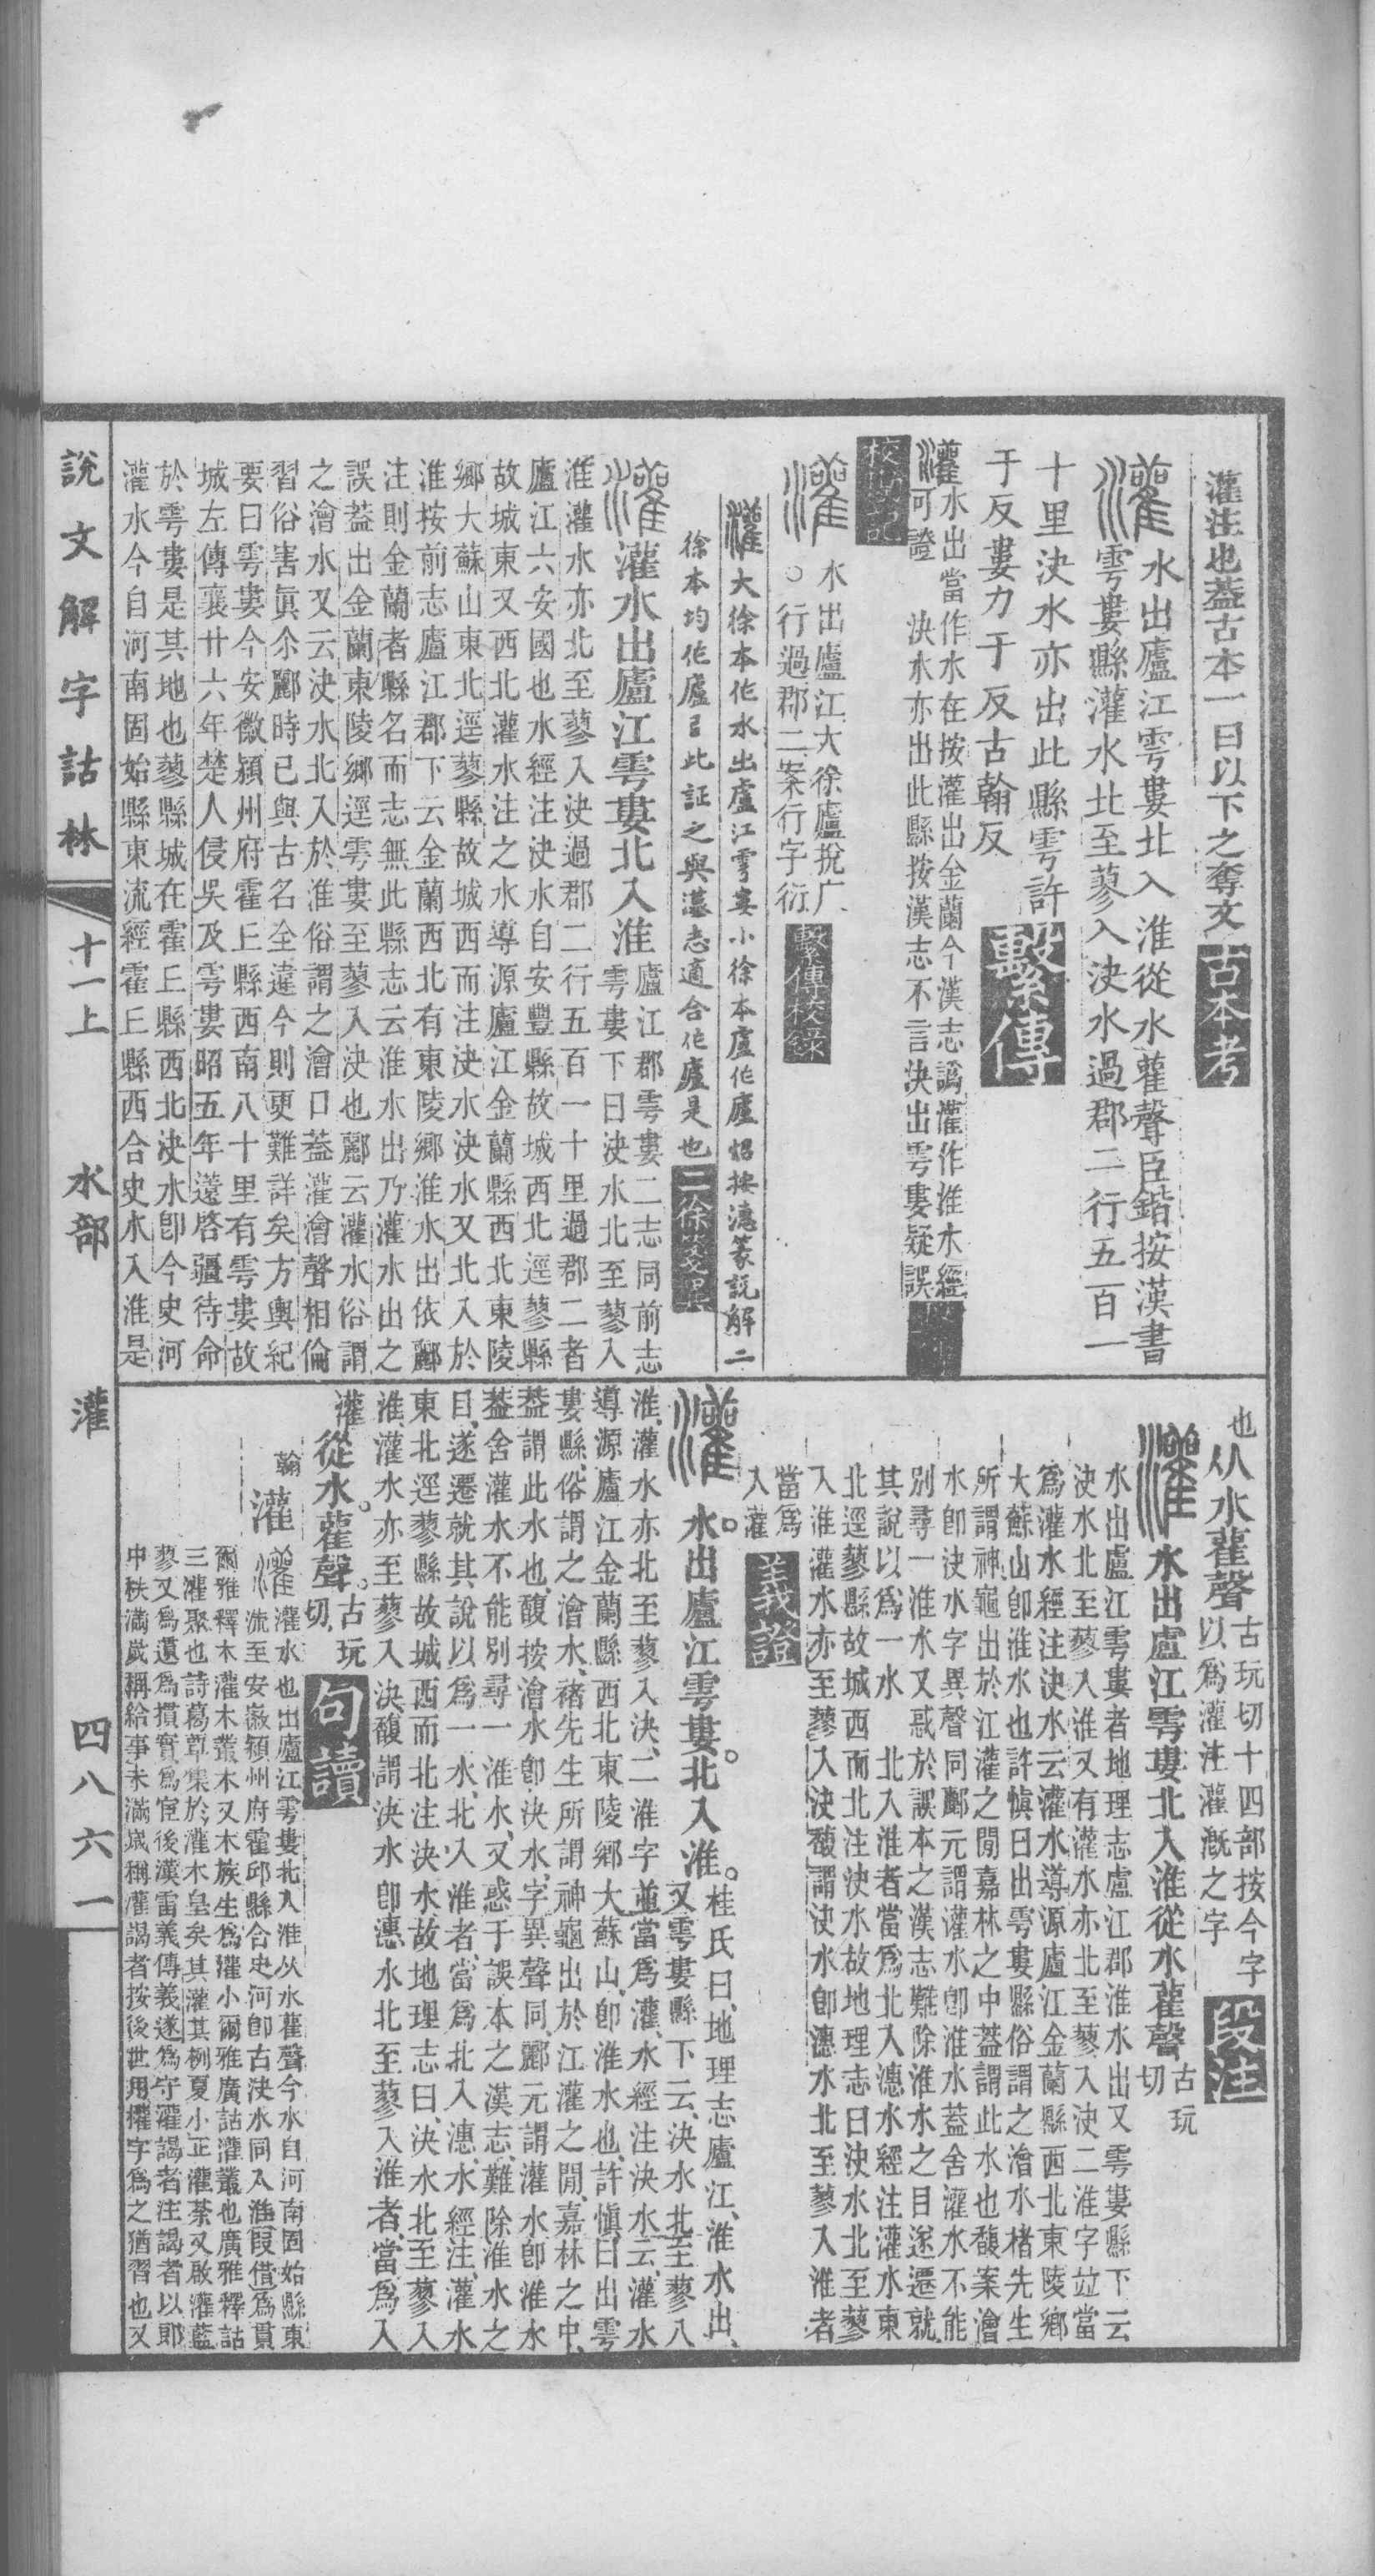 灌注也葢古本一曰以下之奪文 古本考
灌 水出廬江雩婁北入淮從水雚聲臣鍇按漢書
雩婁縣灌水北至蓼入決水過郡二行五百一
十里決水亦出此縣雩許
于反婁力于反古翰反 繫傳
灌 水出當作水在按灌出金蘭今漢志譌灌作淮水經
可證 決水亦出此縣按漢志不言決出雩婁疑誤
校勘記
灌 水出廬江大徐廬挩广
○行過郡二案行字衍 繫傳校錄
灌 大徐本作水出盧江雩婁小徐本盧作廬炤按漶篆説解二
徐本均作廬㠯此証之與漢志適合作廬是也 二徐箋異
灌 灌水出廬江雩婁北入淮 廬江郡雩婁二志同前志
雩婁下曰決水北至蓼入
淮灌水亦北至蓼入決過郡二行五百一十里過郡二者
廬江六安國也水經注決水自安豐縣故城西北逕蓼縣
故城東又西北灌水注之水導源廬江金蘭縣西北東陵
鄉大蘇山東北逕蓼縣故城西而注決水決水又北入於
淮按前志廬江郡下云金蘭西北有東陵鄉淮水出依酈
注則金蘭者縣名而志無此縣志云淮水出乃灌水出之
誤葢出金蘭東陵鄉逕雩婁至蓼入決也酈云灌水俗謂
之澮水又云決水北入於淮俗謂之澮口葢灌澮聲相倫
習俗害眞尒酈時已與古名全違今則更難詳矣方輿紀
要曰雩婁今安徽潁州府霍丘縣西南八十里有雩婁故
城左傳襄廿六年楚人侵吳及雩婁昭五年薳啓疆待命
於雩婁是其地也蓼縣城在霍丘縣西北決水卽今史河
灌水今自河南固始縣東流經霍丘縣西合史水入淮是
也从水雚聲 古玩切十四部按今字
以爲灌注灌漑之字 段注
灌 水出盧江雩婁北入淮從水雚聲 古玩
切
水出盧江雩婁者地理志盧江郡淮水出又雩婁縣下云
決水北至蓼入淮又有灌水亦北至蓼入決二淮字竝當
爲灌水經注決水云灌水導源廬江金蘭縣西北東陵鄉
大蘇山卽淮水也許愼曰出雩婁縣俗謂之澮水褚先生
所謂神龜出於江灌之閒嘉林之中葢謂此水也馥案澮
水卽決水字異聲同酈元謂灌水卽淮水葢舍灌水不能
別尋一淮水又惑於誤本之漢志難除淮水之目遂遷就
其說以爲一水 北入淮者當爲北入漶水經注灌水東
北逕蓼縣故城西而北注決水故地理志曰決水北至蓼
入淮灌水亦至蓼入決馥謂決水卽漶水北至蓼入淮者
當爲
入灌 義證
灌 水。出廬江雩婁。北入淮。 桂氏曰、地理志廬江、淮水出、
又雩婁縣下云、決水北至蓼入
淮、灌水亦北至蓼入決、二淮字並當爲灌、水經注決水云、灌水
導源廬江金蘭縣西北東陵鄉大蘇山、卽淮水也、許愼曰出雩
婁縣、俗謂之澮水、褚先生所謂神龜出於江灌之閒、嘉林之中、
葢謂此水也、馥按澮水卽決水、字異聲同、酈元謂灌水卽淮水
葢舍灌水不能別尋一淮水、又惑于誤本之漢志、難除淮水之
目、遂遷就其說以爲一水、北入淮者、當爲北入漶、水經注、灌水
東北逕蓼縣故城西而北注決水、故地理志曰、決水北至蓼入
淮、灌水亦至蓼入決、馥謂決水卽漶水北至蓼入淮者、當爲入
灌 從水。雚聲。 古玩
切、 句讀
翰 灌 灌 灌水也出廬江雩婁北入淮从水雚聲今水自河南固始縣東
流至安徽潁州府霍邱縣合史河卽古決水同入淮叚借爲貫
爾雅釋木灌木叢木又木族生爲灌小爾雅廣詁灌叢也廣雅釋詁
三灌聚也詩葛覃集於灌木皇矣其灌其栵夏小正灌荼又啟灌藍
蓼又爲遺爲摜實爲宦後漢雷義傳義遂爲守灌謁者注謁者以郎
中秩滿歲稱給事未滿歲稱灌謁者按後世用權字爲之猶習也又
說文解字詁林 十一上 水部 灌 四八六一